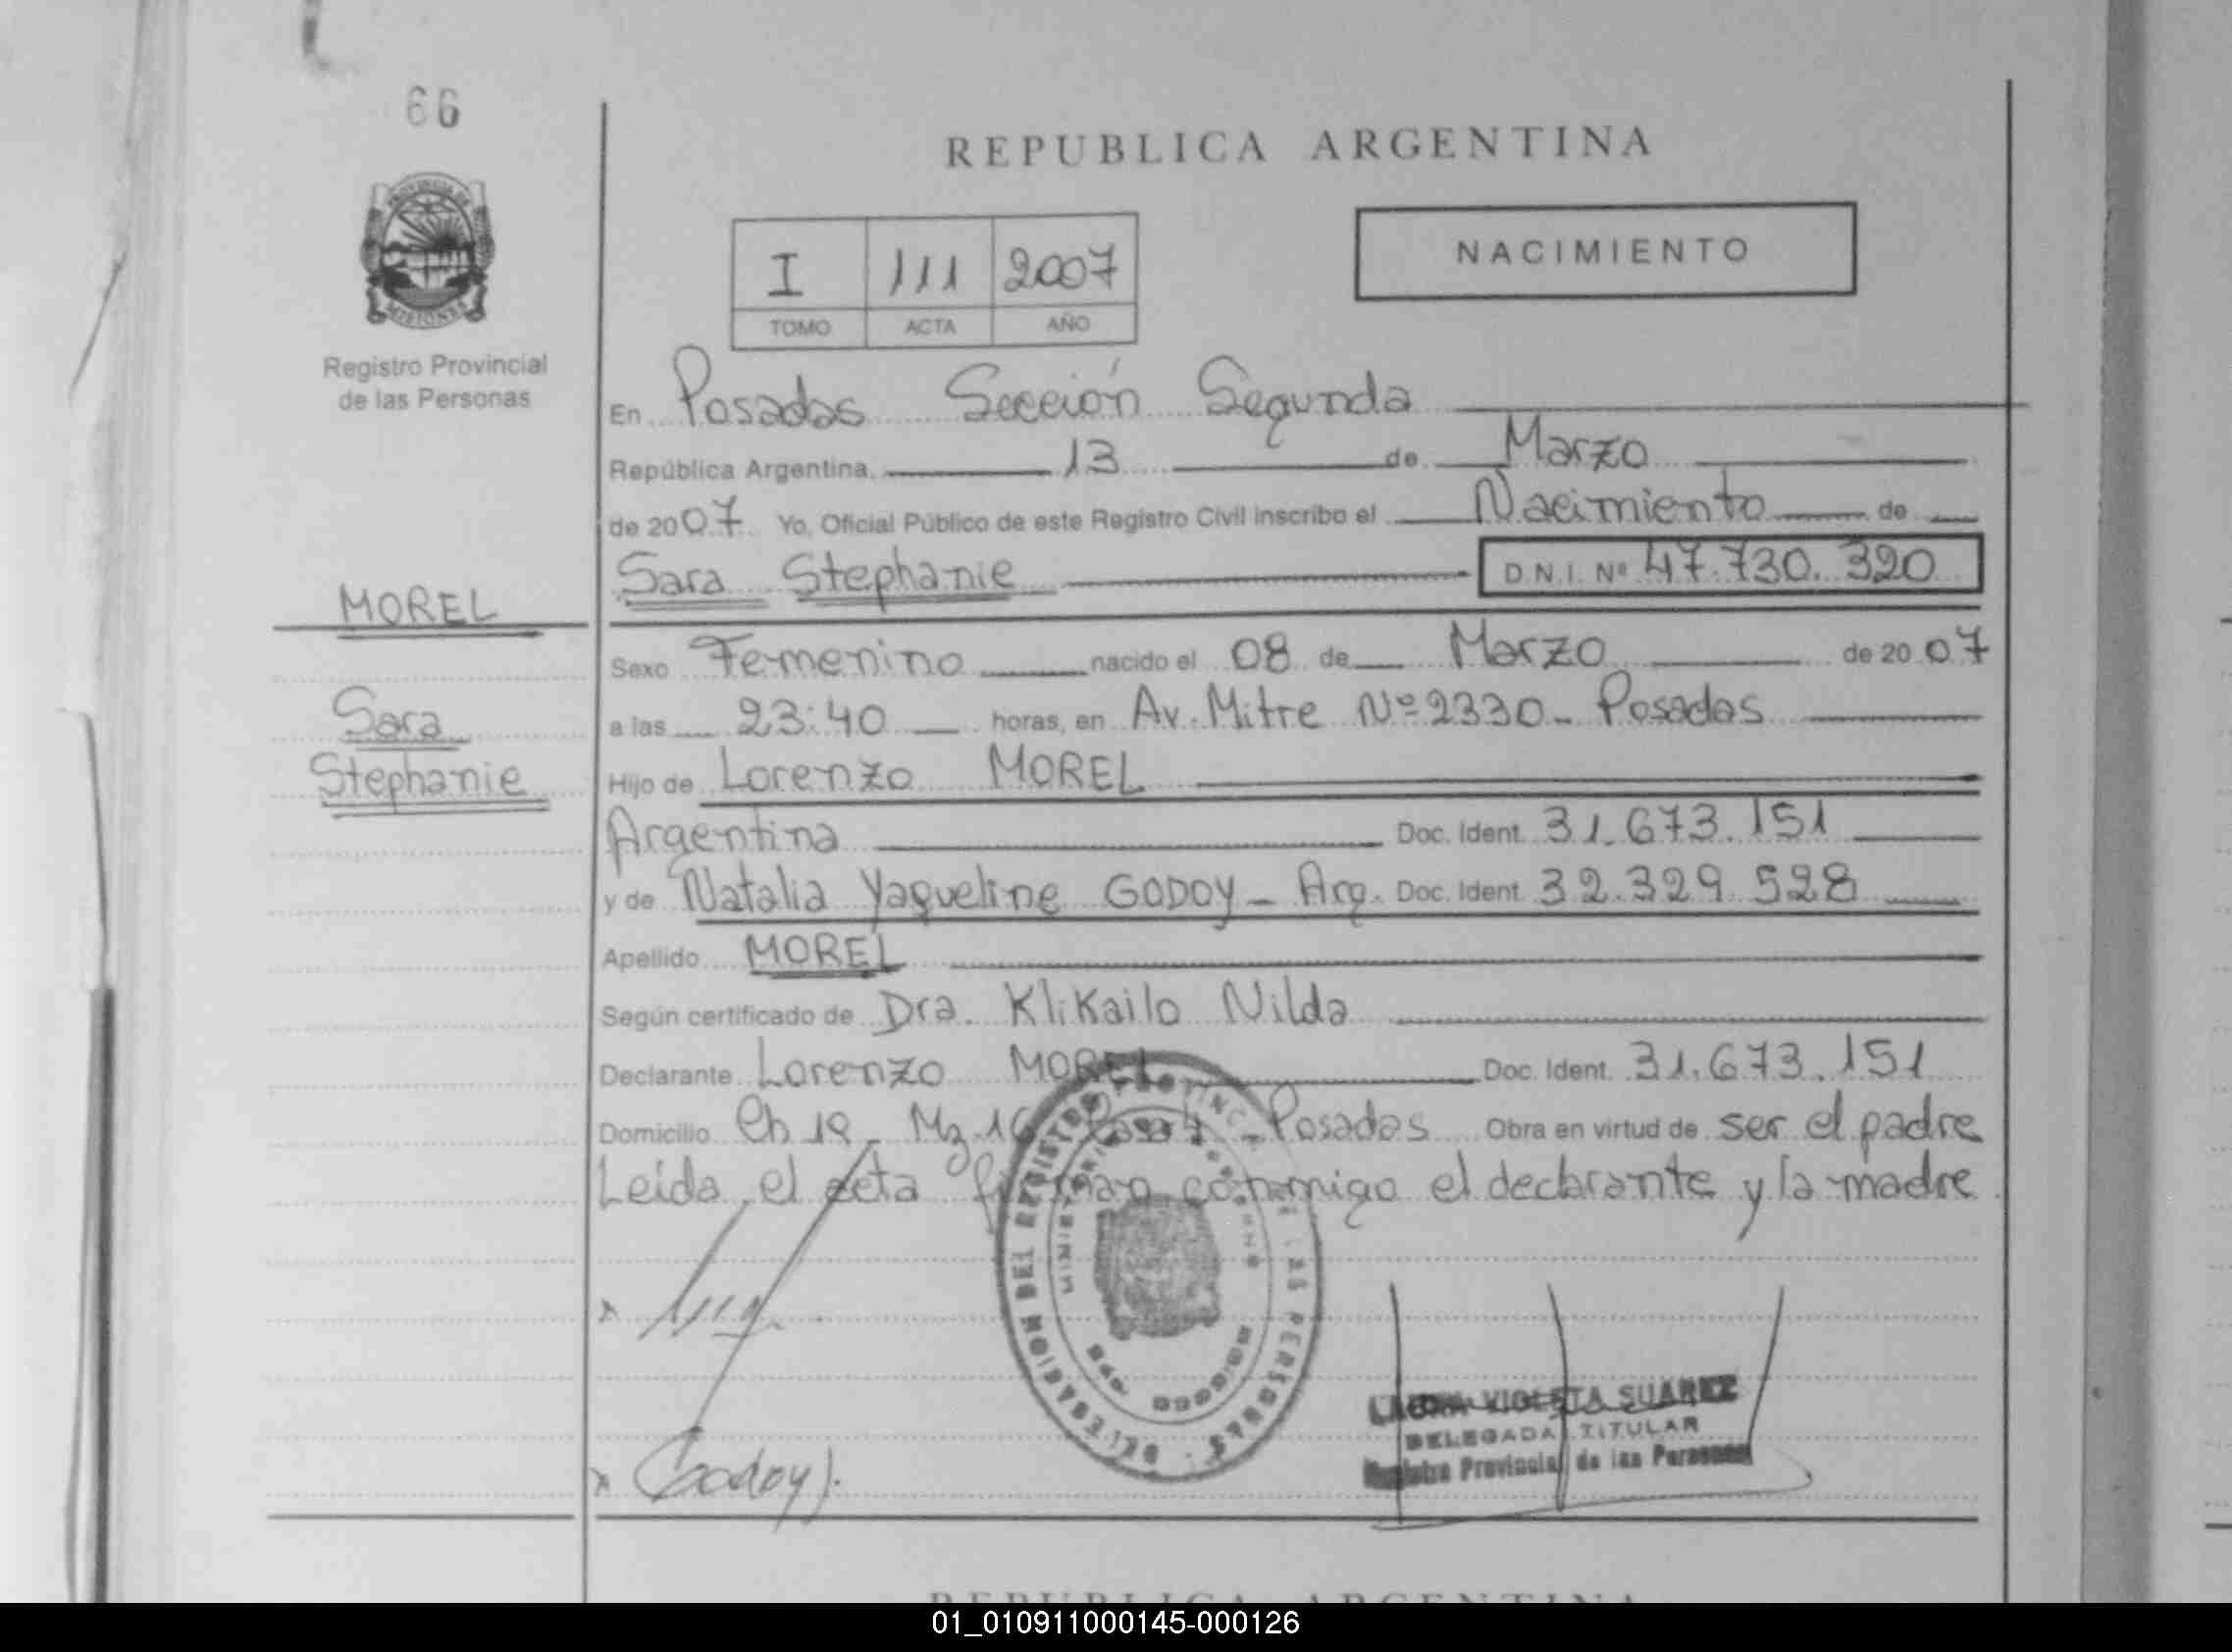 66
REPUBLICA ARGENTINA
PROVINCIA DE
MISIONES
Registro Provincial
de las Personas
I 111 2007
TOMO ACTA AÑO
NACIMIENTO
En Posadas Sección Segunda
República Argentina, 13 de Marzo
de 2007 Yo, Oficial Público de este Registro Civil inscribo el Nacimiento de
Sara Stephanie D.N.I. Nº 47.730.320
MOREL
Sara
Stephanie
Sexo Femenino nacido el 08 de Marzo de 2007
a las 23:40 horas, en Av. Mitre Nº 2330 - Posadas
Hijo de Lorenzo MOREL
Argentina Doc. Ident. 31.673.151
y de Natalia Yaqueline GODOY - Arg. Doc. Ident. 32.329.528
Apellido MOREL
Según certificado de Dra. Klikailo Nilda
Declarante Lorenzo MOREL Doc. Ident. 31.673.151
Domicilio Ch 19 - Mz. 16 Casa 4 - Posadas Obra en virtud de ser el padre
Leida el acta firman conmigo el declarante y la madre
DEL REGISTRO PROVINCIAL DE LAS PERSONAS
Godoy
LAURA VIOLETA SUAREZ
DELEGADA TITULAR
Registro Provincial de las Personas
REPUBLICA ARGENTINA
01_010911000145-000126